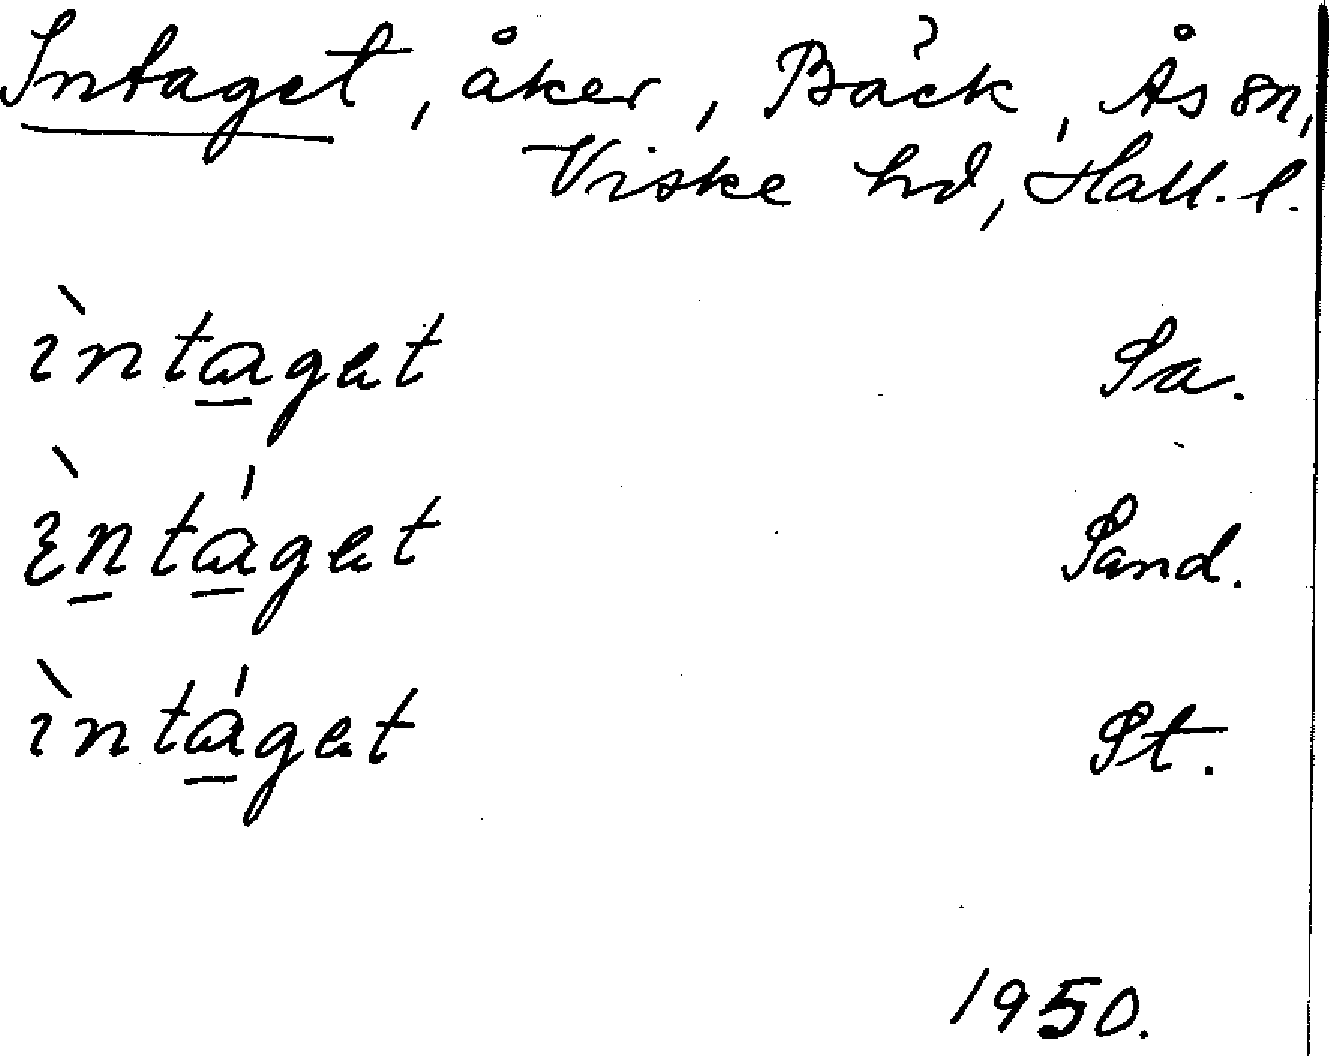 Intaget, åker, Bäck, Ås sn,
Viske hd, Hall. l.
ìntaget Sa.
ɛ̀ntáget Sand.
ìntáget St.
1950.